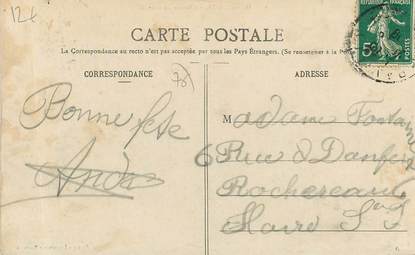 12€
RÉPUBLIQUE FRANÇAISE
5c
CARTE POSTALE
La Correspondance au recto n'est pas acceptée par tous les Pays Étrangers. (Se renseigner à la
CORRESPONDANCE
ADRESSE
78
Bonne fête
Madame Fontaine
6 Rue d Danfert
Rochereau